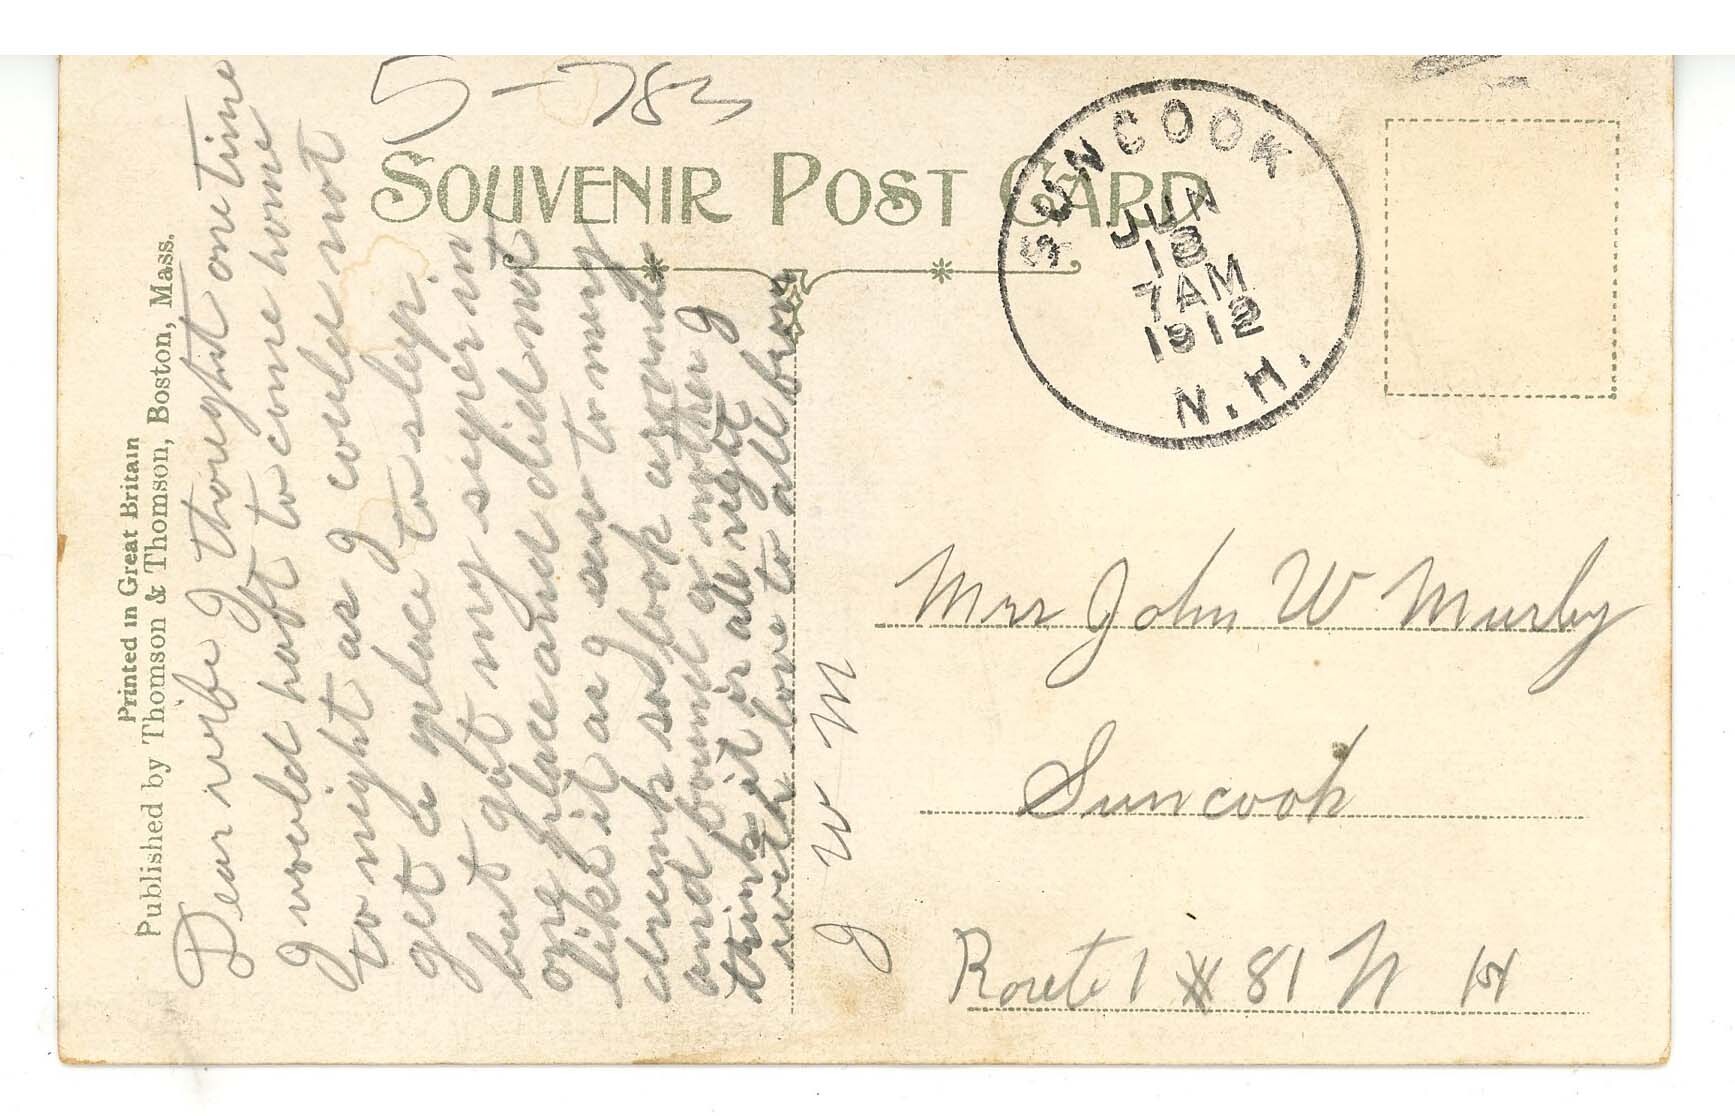 5-783
SOUVENIR POST CARD
SUNCOOK
JUN
18
7 AM
1912
N.H.
Printed in Great Britain
Published by Thomson & Thomson, Boston, Mass.
Dear wife I thought one time
I would haft to come home
to night as I could not
get a place to sleep.
but got my super in
one place and did not
like it as I saw to many
drunk so look around
and found another I
think it is all right
with love to all from
J W M
Mrs John W Murby
Suncook
Route 1 # 81 N H